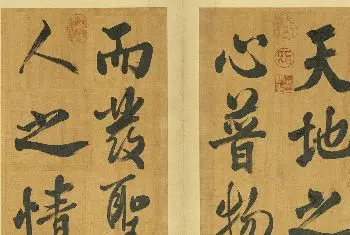 天地之
心普物
而發聖
人之情